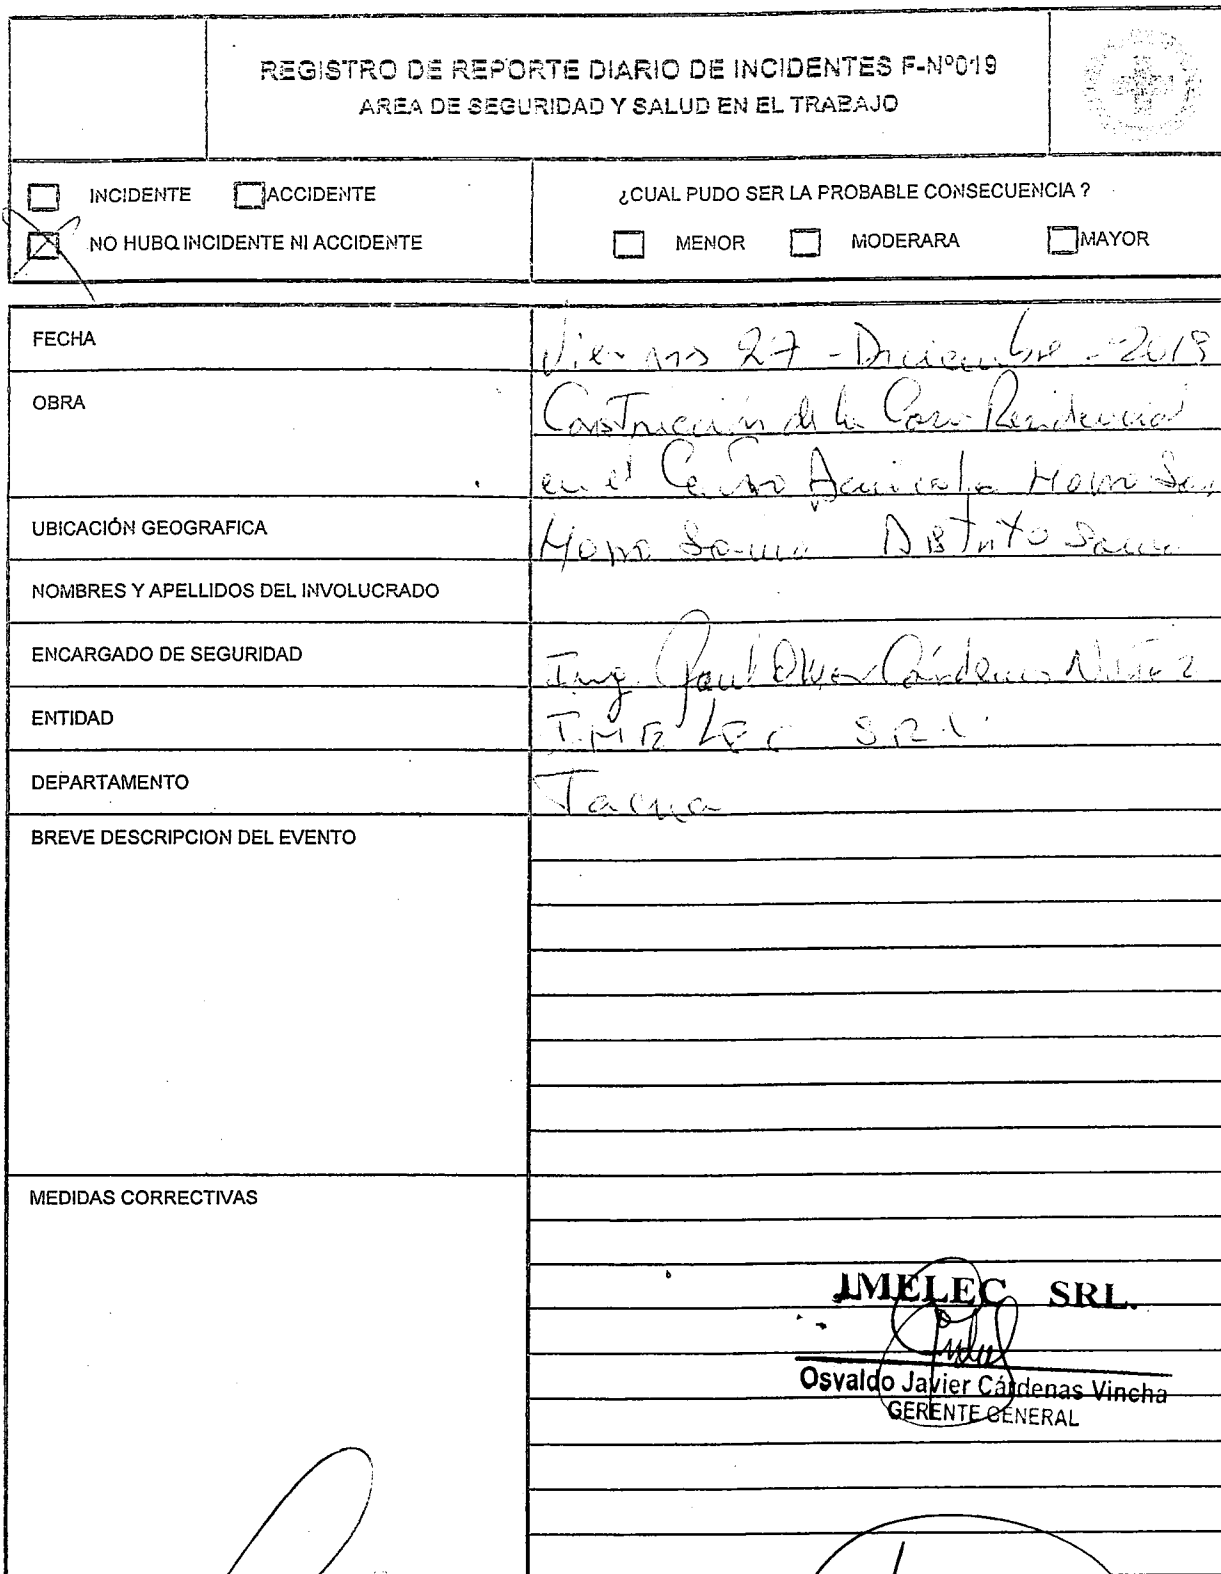 REGISTRO DE REPORTE DIARIO DE INCIDENTES F-Nº019
AREA DE SEGURIDAD Y SALUD EN EL TRABAJO
INCIDENTE ACCIDENTE
NO HUBO INCIDENTE NI ACCIDENTE
¿CUAL PUDO SER LA PROBABLE CONSECUENCIA ?
MENOR MODERARA MAYOR
FECHA Viernes 27 - Diciembre - 2019
OBRA Construcción de la Casa Residencial
en el Centro Acuicola Morro Sa
UBICACIÓN GEOGRAFICA Morro Sama Distrito Sama
NOMBRES Y APELLIDOS DEL INVOLUCRADO
ENCARGADO DE SEGURIDAD Ing. Cárdenas
ENTIDAD IMELEC SRL
DEPARTAMENTO Tacna
BREVE DESCRIPCION DEL EVENTO
MEDIDAS CORRECTIVAS
IMELEC SRL.
Osvaldo Javier Cárdenas Vincha
GERENTE GENERAL